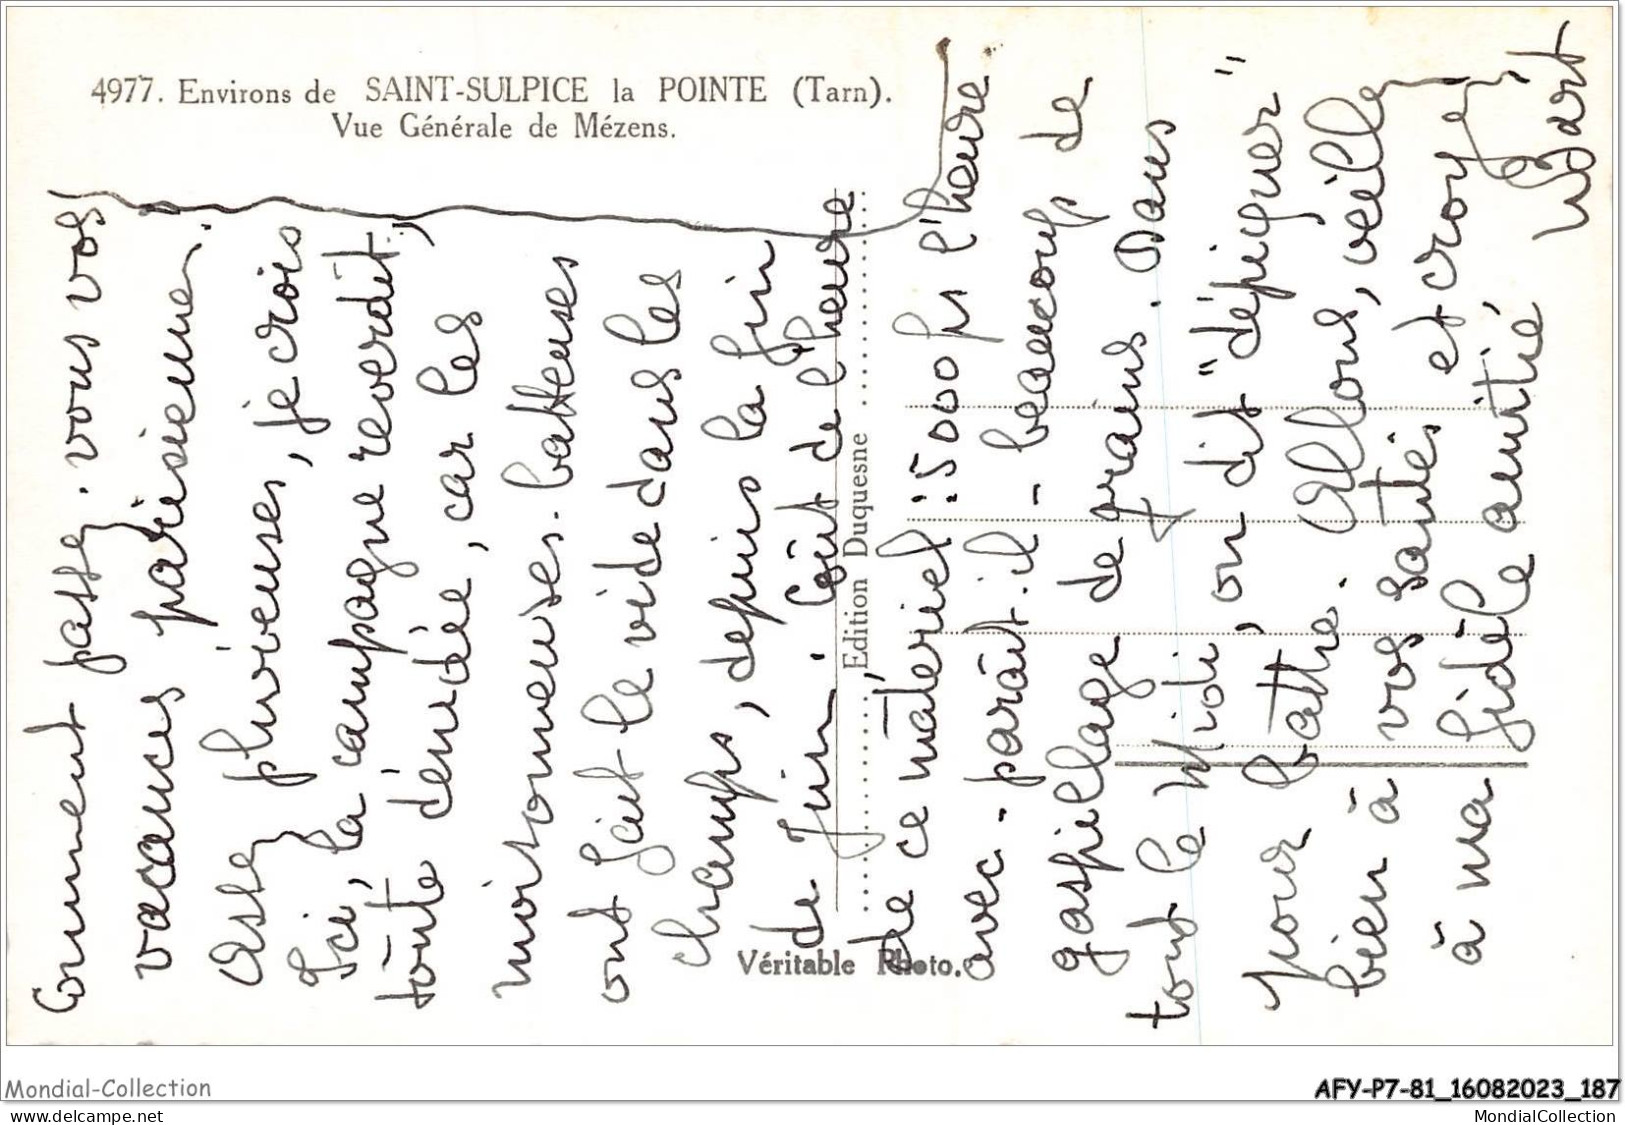 4977. Environs de SAINT-SULPICE la POINTE (Tarn).
Vue Générale de Mézens.
Comment passez-vous vos
vacances parisiennes.
Assez pluvieuses, je crois
Ici, la campagne reverdit,
toute dénudée, car les
moissonneuses-batteuses
ont fait le vide dans les
champs, depuis la fin
de Juin. Coût de l'heure
de ce matériel : 5000 frs l'heure
avec - paraît-il - beaucoup de
gaspillage de grains. Dans
tout le Midi, on dit "dépiquer"
pour battre. Allons, veillez
bien à vos santés et croyez
à ma fidèle amitié,
Édition Duquesne
Véritable Photo.
Mondial-Collection
www.delcampe.net
AFY-P7-81_16082023_187
MondialCollection